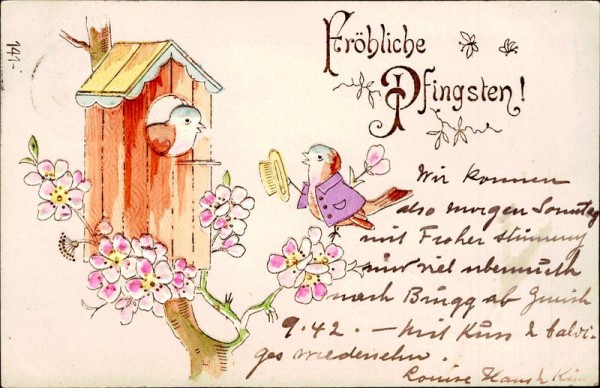 141-
Fröhliche
Pfingsten!
Wir kommen
also morgen Sonntag
mit Froher Stimmung
und viel übermuth
nach Brugg ab Zürich
9.42. – Mit Kuss & baldi-
ges wiedersehn.
Louise